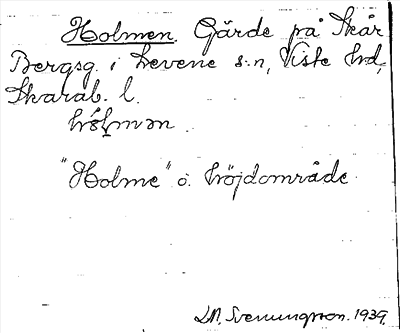 Holmen. Gärde på Skår
Bergsg. i Levene s:n, Viste hd,
Skarab. l.
hólmən
"Holme" o. höjdområde
D.A. Svenungsson. 1939.